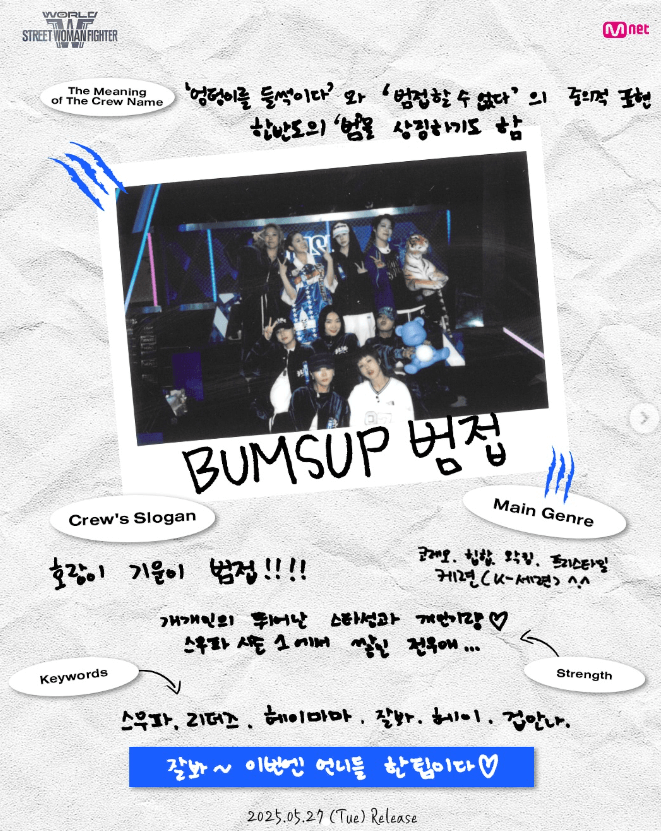 WORLD
STREET WOMAN FIGHTER
Mnet
The Meaning
of The Crew Name
'엉덩이를 들썩이다' 와 '범접할 수 없다' 의 중의적 표현
한반도의 '범'을 상징하기도 함
BUMSUP 범접
Crew's Slogan
호랑이 기운이 범접!!!!
Main Genre
코레오, 힙합, 왁킹, 프리스타일
케련(K-세련) ^.^
개개인의 뛰어난 스타성과 개인기량♡
스우파 시즌 1에서 쌓인 전우애...
Keywords
Strength
스우파, 리더즈, 헤이마마, 잘봐, 헤이, 겁안나.
잘봐~ 이번엔 언니들 한팀이다♡
2025.05.27 (Tue) Release